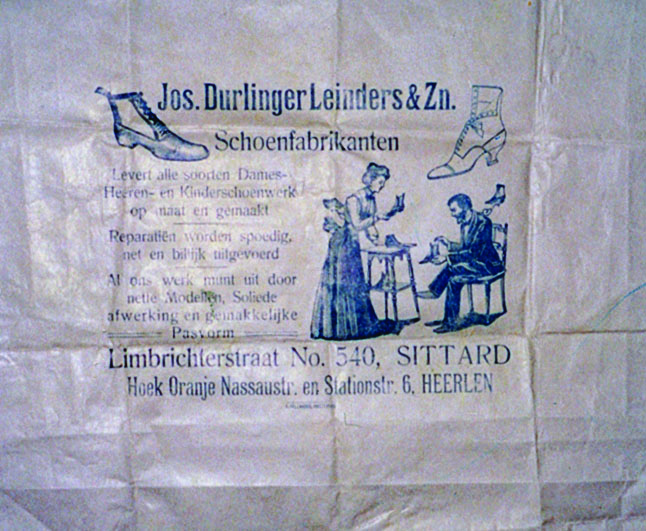 Jos. Durlinger Leinders & Zn.
Schoenfabrikanten
Levert alle soorten Dames-
Heeren- en Kinderschoenwerk
op maat en gemaakt
Reparatiën worden spoedig,
net en billijk uitgevoerd
Al ons werk munt uit door
nette Modellen, Soliede
afwerking en gemakkelijke
Pasvorm
Limbrichterstraat No. 540, SITTARD
Hoek Oranje Nassaustr. en Stationstr. 6, HEERLEN